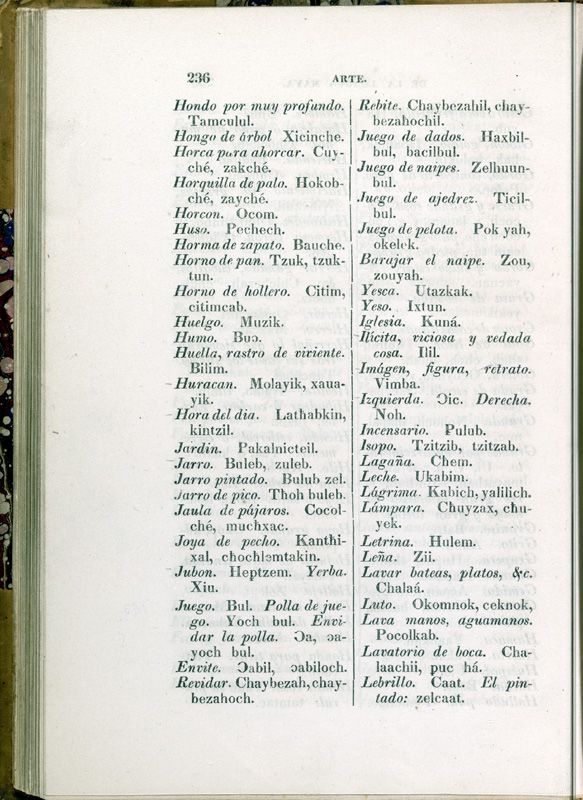 236
ARTE.
Hondo por muy profundo.
Tamculul.
Hongo de árbol Xicinche.
Horca para ahorcar. Cuy-
ché, zakché.
Horquilla de palo. Hokob-
ché, zayché.
Horcon. Ocom.
Huso. Pechech.
Horma de zapato. Bauche.
Horno de pan. Tzuk, tzuk-
tun.
Horno de hollero. Citim,
citimcab.
Huelgo. Muzik.
Humo. Buɔ.
Huella, rastro de viviente.
Bilim.
Huracan. Molayik, xaua-
yik.
Hora del dia. Lathabkin,
kintzil.
Jardin. Pakalnicteil.
Jarro. Buleb, zuleb.
Jarro pintado. Bulub zel.
Jarro de pico. Thoh buleb.
Jaula de pájaros. Cocol-
ché, muchxac.
Joya de pecho. Kanthi-
xal, chochlemtakin.
Jubon. Heptzem. Yerba.
Xiu.
Juego. Bul. Polla de jue-
go. Yoch bul. Envi-
dar la polla. Ɔa, ɔa-
yoch bul.
Envite. Ɔabil, ɔabiloch.
Revidar. Chaybezah, chay-
bezahoch.
Rebite. Chaybezahil, chay-
bezahochil.
Juego de dados. Haxbil-
bul, bacilbul.
Juego de naipes. Zelhuun-
bul.
Juego de ajedrez. Ticil-
bul.
Juego de pelota. Pok yah,
okelek.
Barajar el naipe. Zou,
zouyah.
Yesca. Utazkak.
Yeso. Ixtun.
Iglesia. Kuná.
Ilícita, viciosa y vedada
cosa. Ilil.
Imágen, figura, retrato.
Vimba.
Izquierda. Ɔic. Derecha.
Noh.
Incensario. Pulub.
Isopo. Tzitzib, tzitzab.
Lagaña. Chem.
Leche. Ukabim.
Lágrima. Kabich, yalilich.
Lámpara. Chuyzax, chu-
yek.
Letrina. Hulem.
Leña. Zii.
Lavar bateas, platos, &c.
Chalaá.
Luto. Okomnok, ceknok,
Lava manos, aguamanos.
Pocolkab.
Lavatorio de boca. Cha-
laachii, puc há.
Lebrillo. Caat. El pin-
tado: zelcaat.